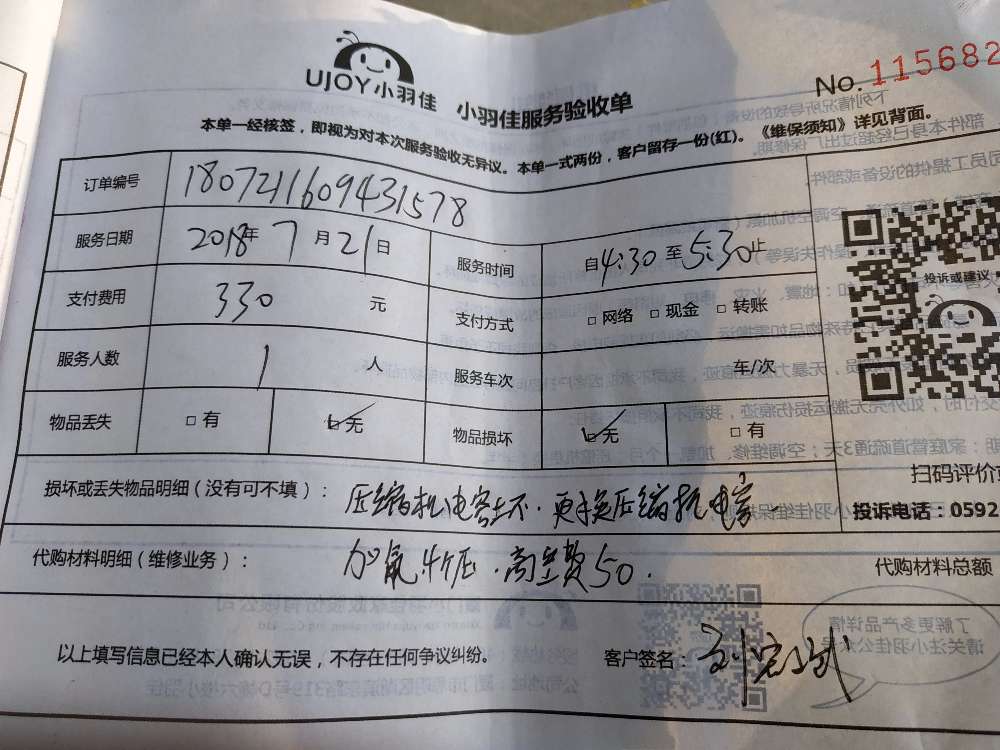 UJOY小羽佳 小羽佳服务验收单 No. 115682
本单一经核签，即视为对本次服务验收无异议。本单一式两份，客户留存一份(红)。《维保须知》详见背面。
订单编号 1807211609431578
服务日期 2018年7月21日 服务时间 自4:30至5:30止
支付费用 330元 支付方式 □网络 □现金 □转账
服务人数 1人 服务车次 车/次
物品丢失 □有 ☑无 物品损坏 ☑无 □有
投诉或建议
扫码评价
投诉电话：0592
损坏或丢失物品明细（没有可不填）： 压缩机电容坏.更换压缩机电容.
代购材料明细（维修业务）： 加氟 高空费50. 代购材料总额
以上填写信息已经本人确认无误，不存在任何争议纠纷。 客户签名：